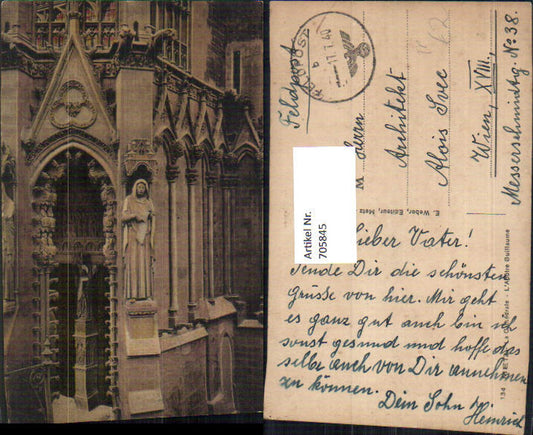 Feldpost
FELDPOST
b
11.7.40
62
Herrn
Architekt
Alois Svec
Wien, XVIII.
Messerschmidtg. No 38.
Artikel Nr.
705845
E. Weber, Editeur, Metz
Lieber Vater!
Sende Dir die schönsten
Grüsse von hier. Mir geht
es ganz gut auch bin ich
sonst gesund und hoffe das
selbe auch von Dir annehmen
zu können.
Dein Sohn
Heinrich